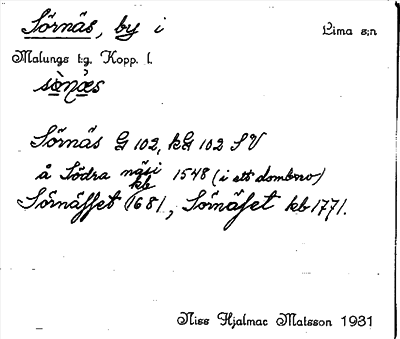 Sörnäs, by i Lima s:n
Malungs t:g. Kopp. l.
sö̀næ̀s
Sörnäs G 102, kG 102 SV
å Södra näsi 1548 (i ett dombrev)
kb
Sörnässet 1681, Sörnäset kb 1771.
Niss Hjalmar Matsson 1931